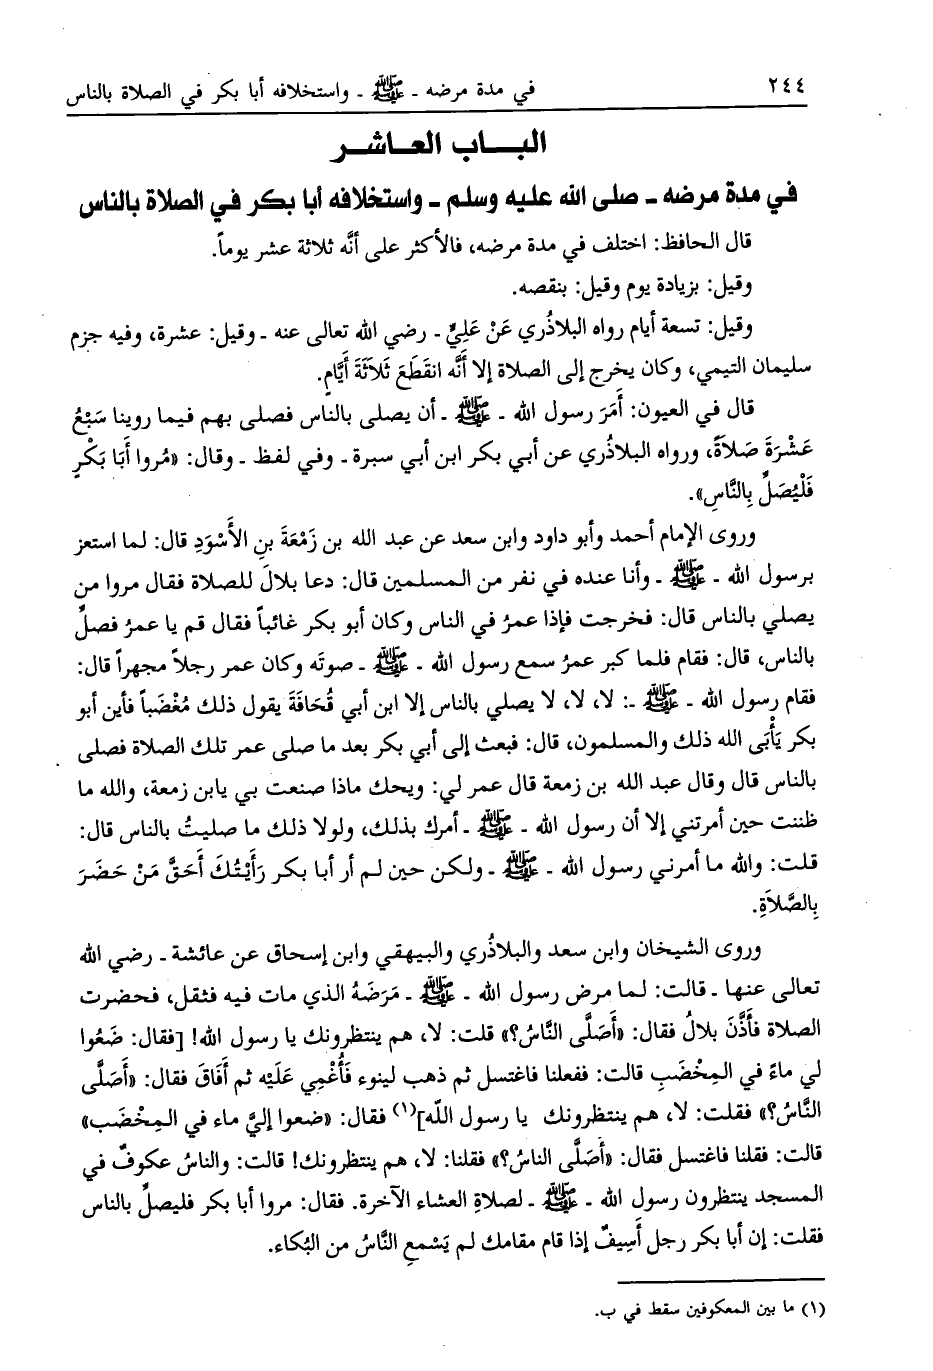 ٢٤٤ في مدة مرضه ـ ﷺ ـ واستخلافه أبا بكر في الصلاة بالناس
البـــاب العـاشـر
في مدة مرضه ـ صلى الله عليه وسلم ـ واستخلافه أبا بكر في الصلاة بالناس
قال الحافظ: اختلف في مدة مرضه، فالأكثر على أنَّه ثلاثة عشر يوماً.
وقيل: بزيادة يوم وقيل: بنقصه.
وقيل: تسعة أيام رواه البلاذُري عَنْ عَلِيٍّ ـ رضي الله تعالى عنه ـ وقيل: عشرة، وفيه جزم
سليمان التيمي، وكان يخرج إلى الصلاة إلا أنَّه انقَطَعَ ثَلَاثَةَ أَيَّامٍ.
قال في العيون: أَمَرَ رسول الله ـ ﷺ ـ أن يصلى بالناس فصلى بهم فيما روينا سَبْعُ
عَشْرَةَ صَلَاَةً، ورواه البلاذُري عن أبي بكر ابن أبي سبرة ـ وفي لفظ ـ وقال: «مُروا أَبَا بَكْرٍ
فَلْيُصَلِّ بِالنَّاسِ».
وروى الإمام أحمد وأبو داود وابن سعد عن عبد الله بن زَمْعَةَ بنِ الأَسْوَدِ قال: لما استعز
برسول الله ـ ﷺ ـ وأنا عنده في نفر من المسلمين قال: دعا بلالَ للصلاة فقال مروا من
يصلي بالناس قال: فخرجت فإذا عمرُ في الناس وكان أبو بكر غائباً فقال قم يا عمرُ فصلِّ
بالناس، قال: فقام فلما كبر عمرُ سمع رسول الله ـ ﷺ ـ صوتَه وكان عمر رجلاً مجهراً قال:
فقام رسول الله ـ ﷺ ـ: لا، لا، لا يصلي بالناس إلا ابن أبي قُحَافَةَ يقول ذلك مُغْضَباً فأين أبو
بكر يَأْبَى الله ذلك والمسلمون، قال: فبعث إلى أبي بكر بعد ما صلى عمر تلك الصلاة فصلى
بالناس قال وقال عبد الله بن زمعة قال عمر لي: ويحك ماذا صنعت بي يابن زمعة، والله ما
ظننت حين أمرتني إلا أن رسول الله ـ ﷺ ـ أمرك بذلك، ولولا ذلك ما صليتُ بالناس قال:
قلت: والله ما أمرني رسول الله ـ ﷺ ـ ولكن حين لم أر أبا بكر رَأَيْتُكَ أَحَقَّ مَنْ حَضَرَ
بِالصَّلاَةِ.
وروى الشيخان وابن سعد والبلاذُري والبيهقي وابن إسحاق عن عائشة ـ رضي الله
تعالى عنها ـ قالت: لما مرض رسول الله ـ ﷺ ـ مَرَضَهُ الذي مات فيه فثقل، فحضرت
الصلاة فأَذَّنَ بلالُ فقال: «أَصَلَّى النَّاسُ؟» قلت: لا، هم ينتظرونك يا رسول الله! [فقال: ضَعُوا
لي ماءً في المِخْضَبِ قالت: ففعلنا فاغتسل ثم ذهب لينوء فَأُغْمِي عَلَيْه ثم أَفَاقَ فقال: «أَصَلَّى
النَّاسُ؟» فقلت: لا، هم ينتظرونك يا رسول اللّه](١) فقال: «ضعوا إليَّ ماء في المِخْضَب»
قالت: فقلنا فاغتسل فقال: «أَصَلَّى الناسُ؟» فقلنا: لا، هم ينتظرونك! قالت: والناسُ عكوفٌ في
المسجد ينتظرون رسول الله ـ ﷺ ـ لصلاةِ العشاء الآخرة. فقال: مروا أبا بكر فليصلِّ بالناس
فقلت: إن أبا بكر رجل أَسِيفٌ إذا قام مقامك لم يَسْمعِ النَّاسُ من البُكاء.
(١) ما بين المعكوفين سقط في ب.